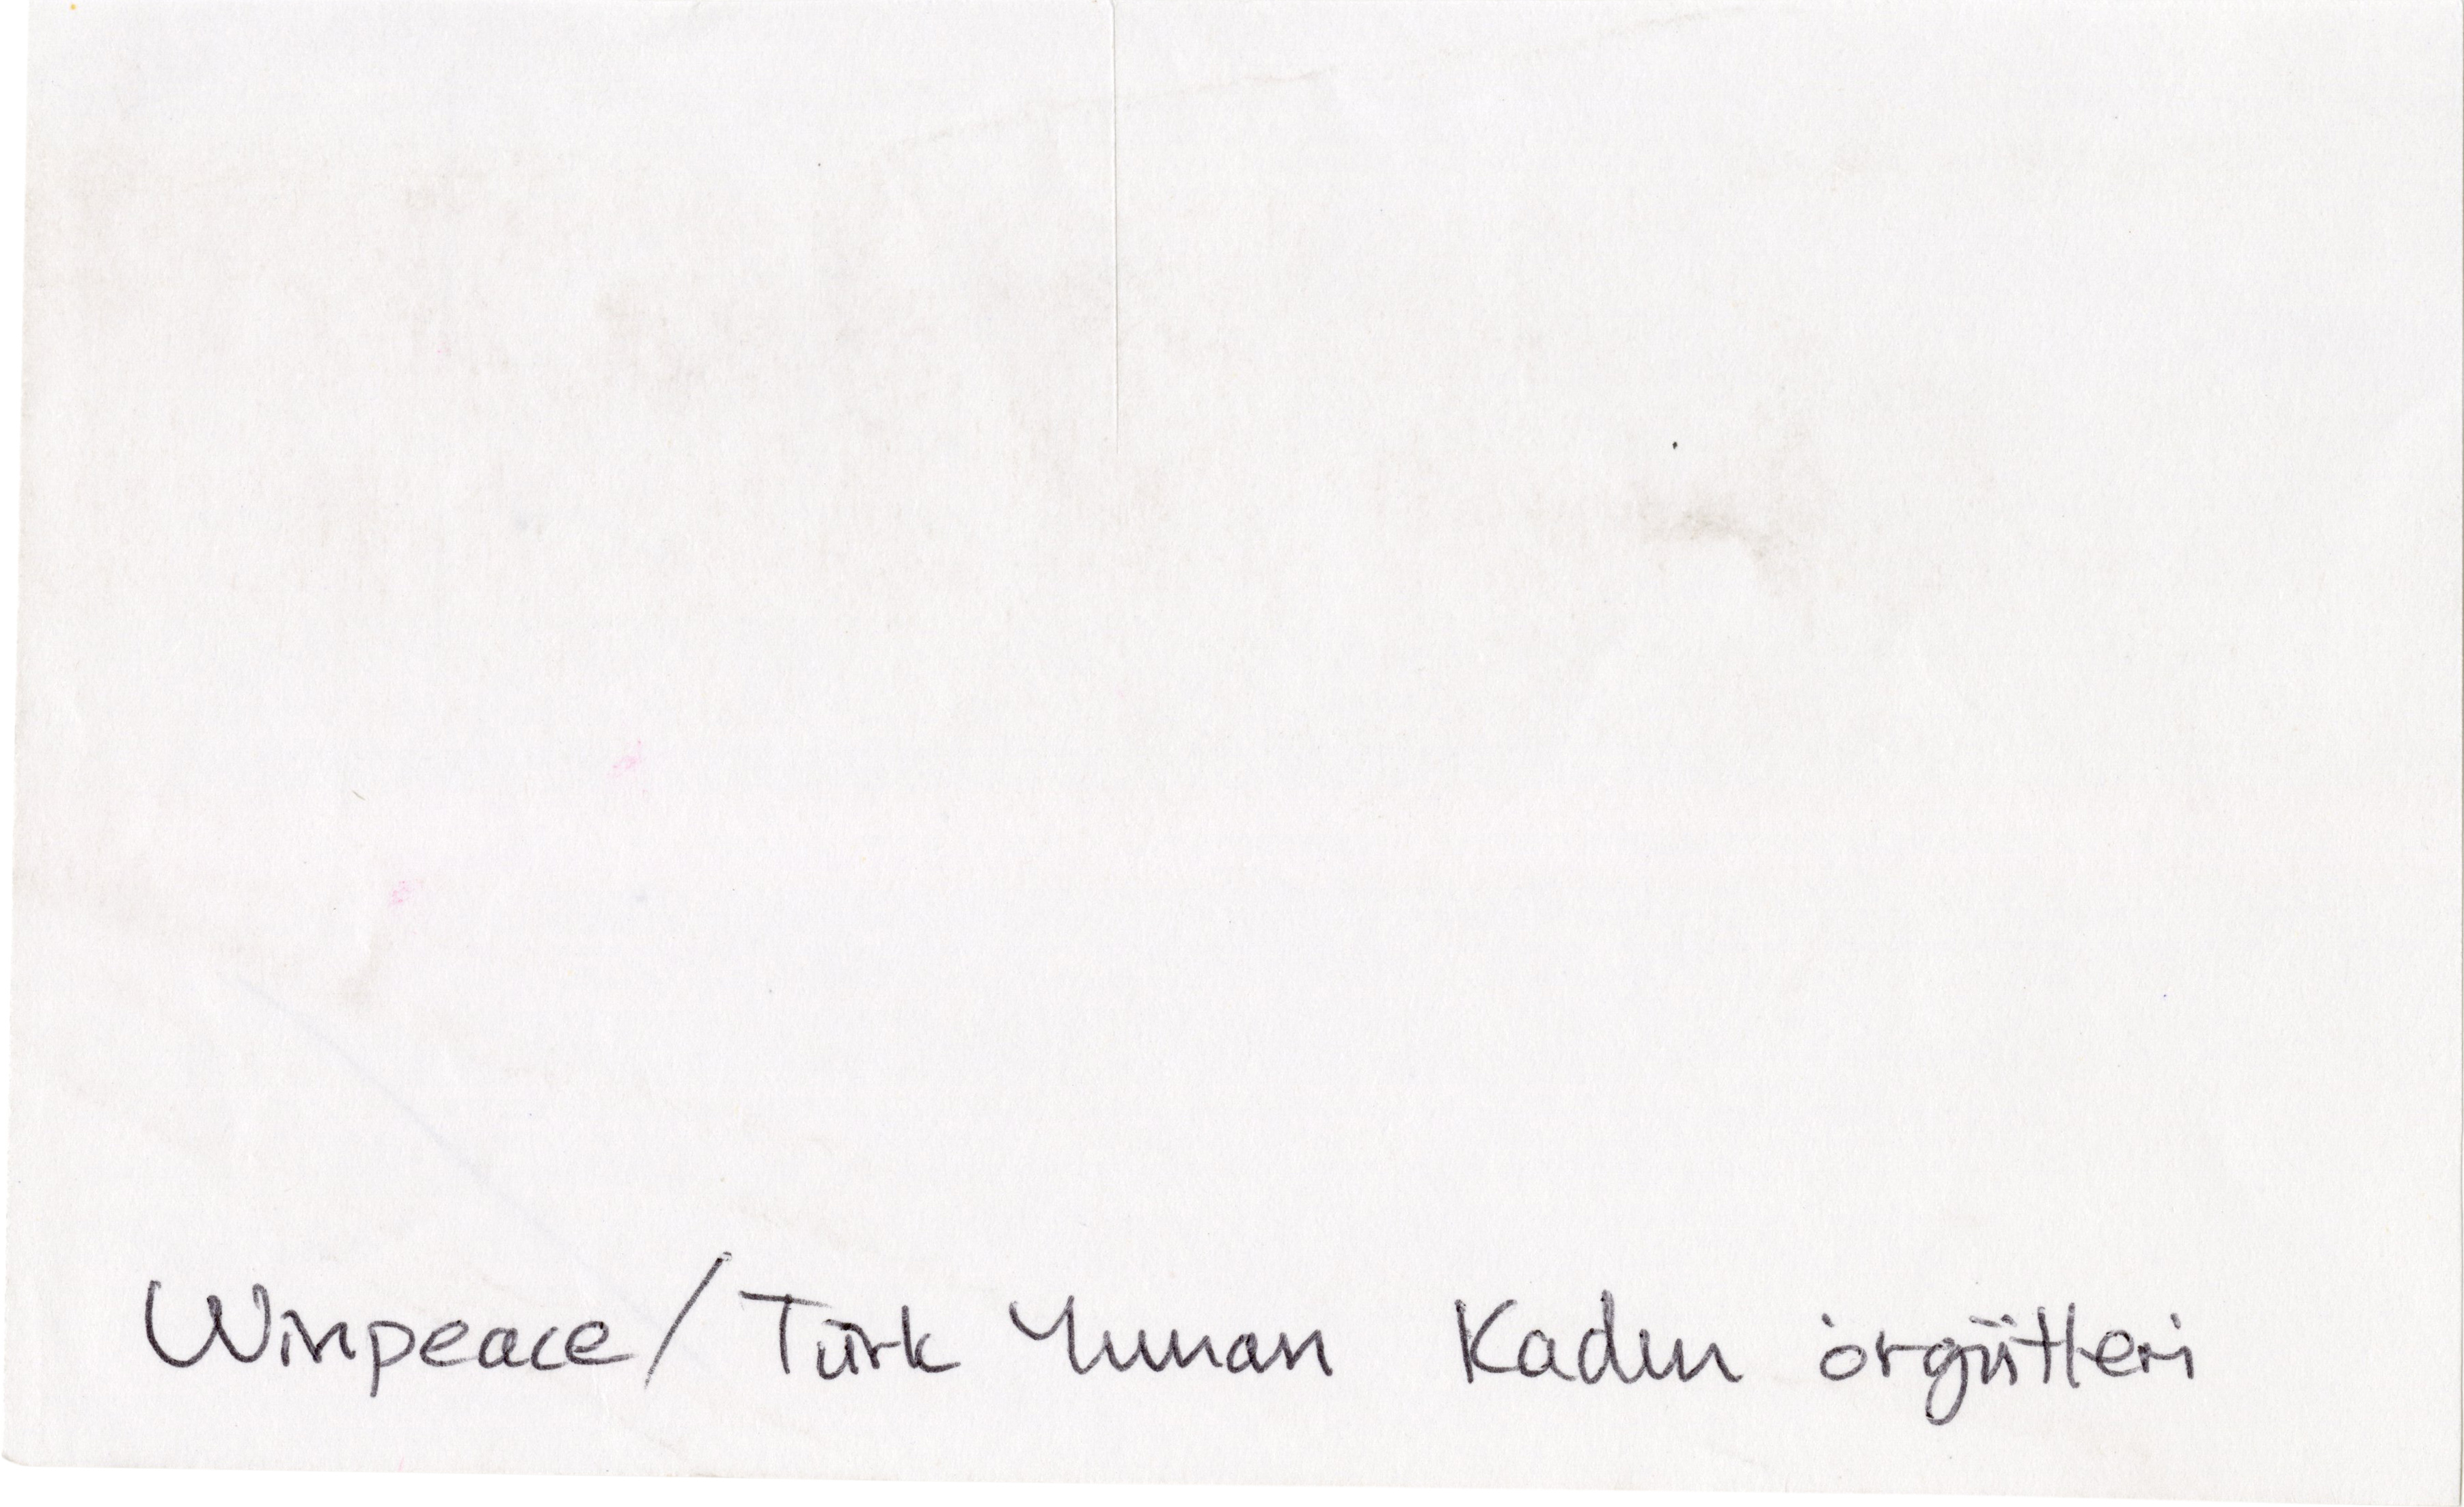 Winpeace/Türk Yunan Kadın örgütleri